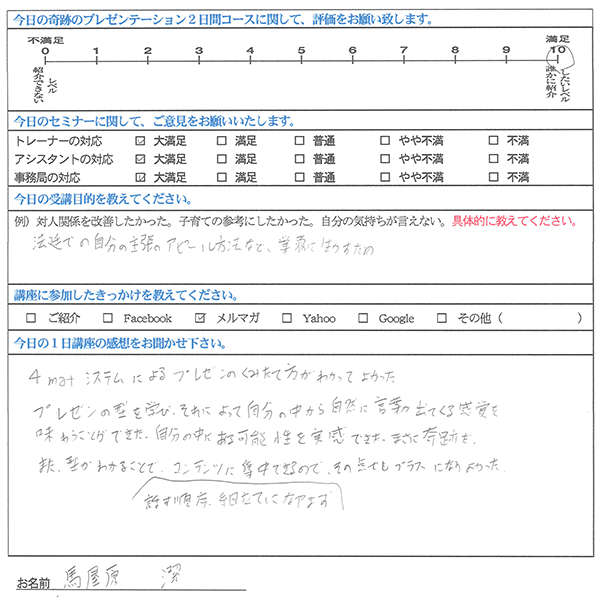 今日の奇跡のプレゼンテーション２日間コースに関して、評価をお願い致します。
不満足 満足
0 1 2 3 4 5 6 7 8 9 10
紹介できないレベル 誰かに紹介したいレベル
今日のセミナーに関して、ご意見をお願いいたします。
トレーナーの対応 ☑ 大満足 □ 満足 □ 普通 □ やや不満 □ 不満
アシスタントの対応 ☑ 大満足 □ 満足 □ 普通 □ やや不満 □ 不満
事務局の対応 ☑ 大満足 □ 満足 □ 普通 □ やや不満 □ 不満
今日の受講目的を教えてください。
例）対人関係を改善したかった。子育ての参考にしたかった。自分の気持ちが言えない。具体的に教えてください。
法廷での自分の主張のアピール方法など、業務に活かすため
講座に参加したきっかけを教えてください。
□ ご紹介 □ Facebook ☑ メルマガ □ Yahoo □ Google □ その他（ ）
今日の１日講座の感想をお聞かせ下さい。
4 mat システムによるプレゼンのくみたて方がわかってよかった
プレゼンの型を学び、それによって自分の中から自然に言葉が出てくる感覚を
味わうことができた。自分の中にある可能性を実感できた。まさに奇跡を。
また、型がわかることで、コンテンツに集中できるので、その点でもプラスになりよかった。
話す順序、組立てになやまず
お名前 馬屋原 潔